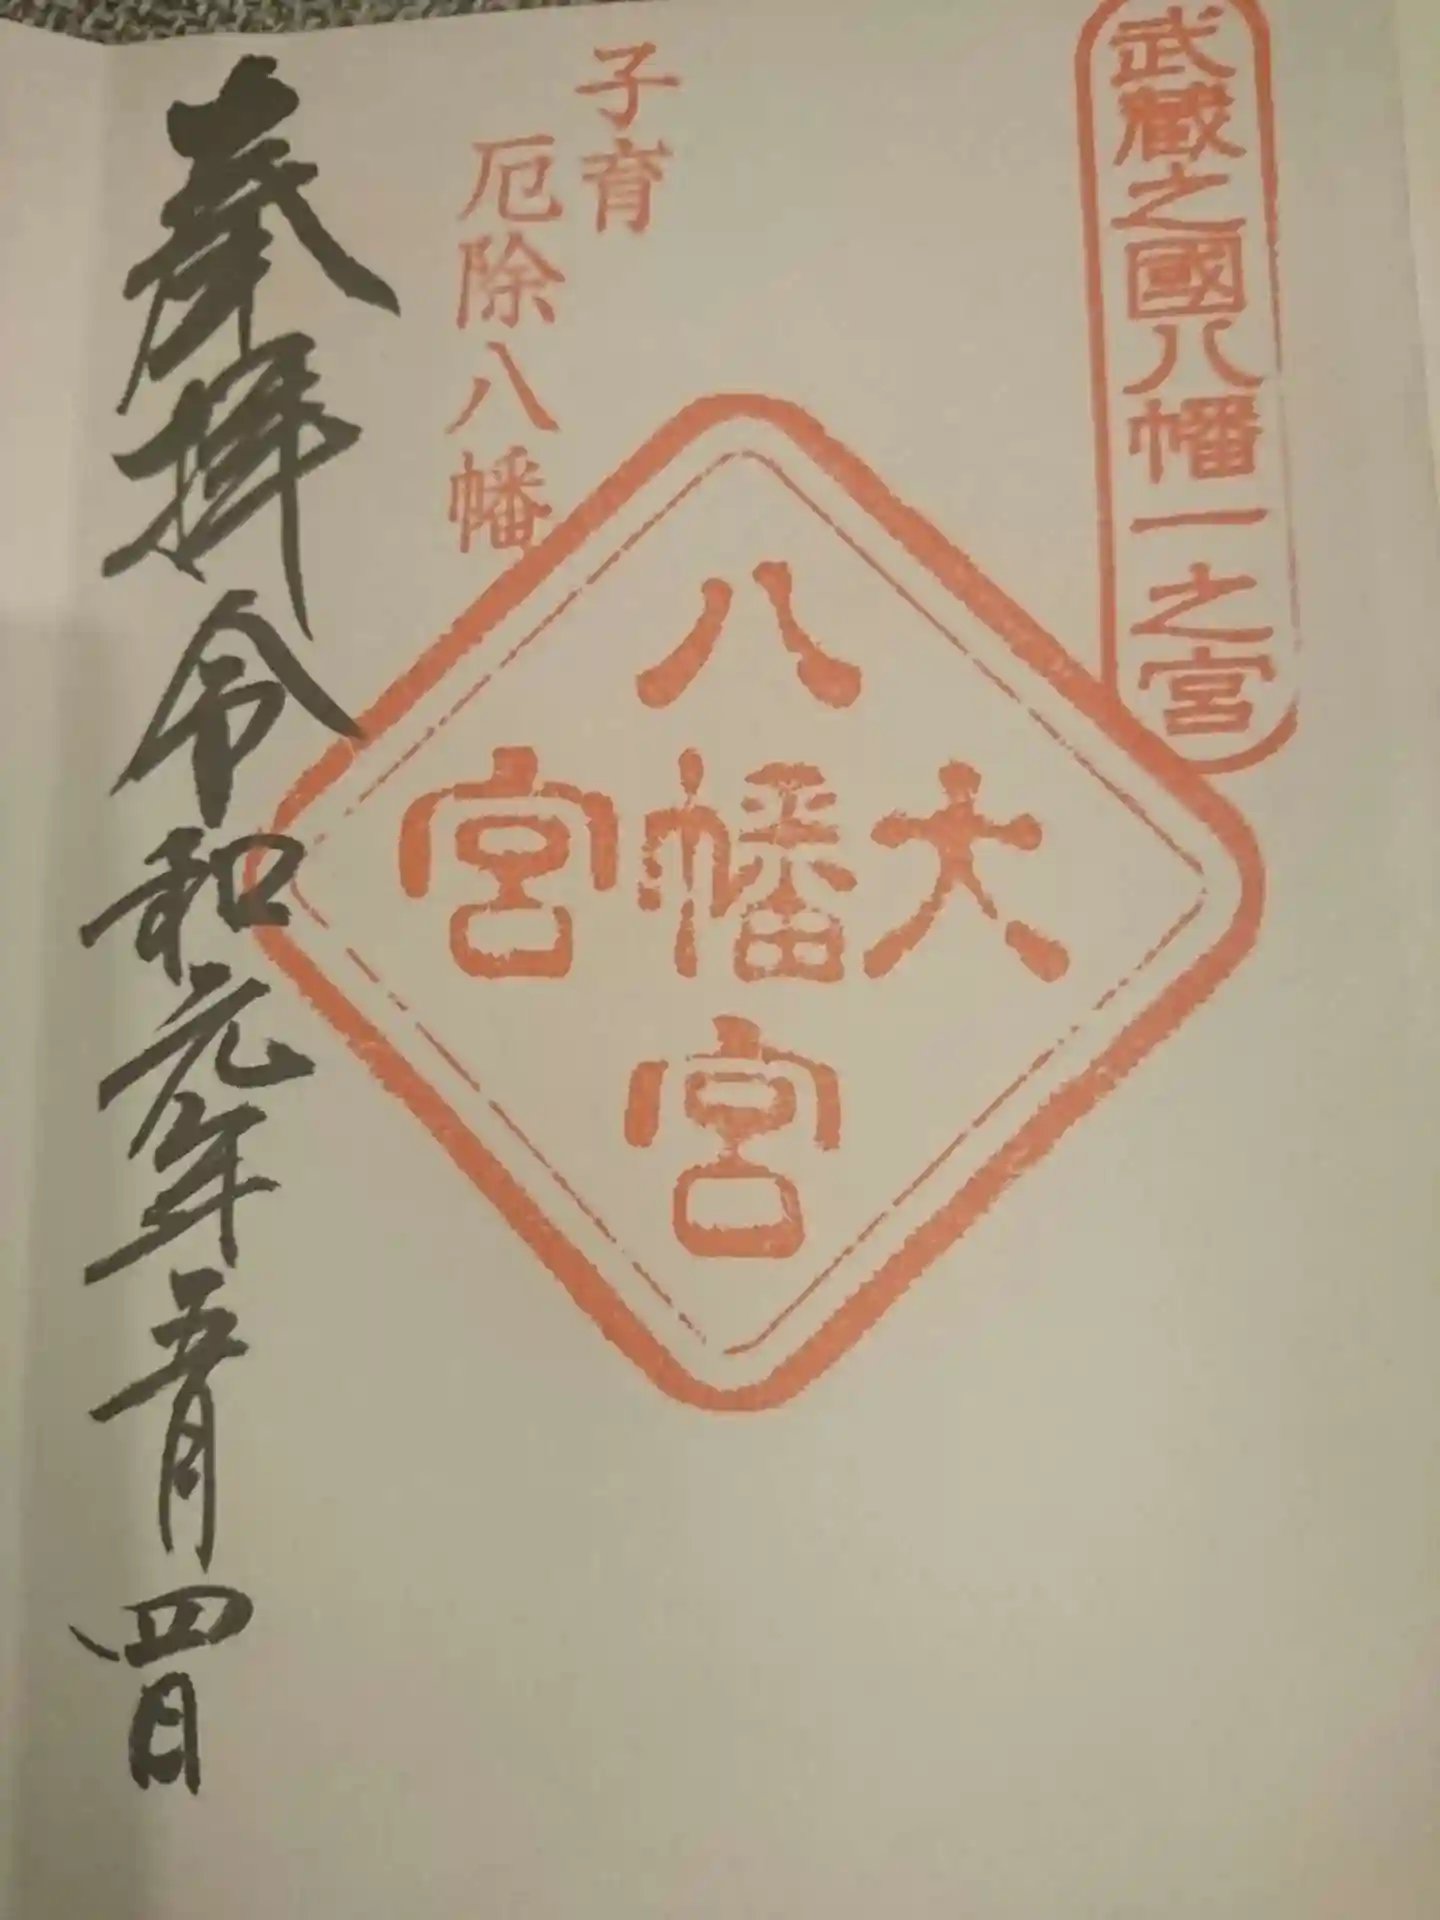 武蔵之國八幡一之宮
子育
厄除八幡
八
大幡宮
宮
奉拝 令和元年五月四日